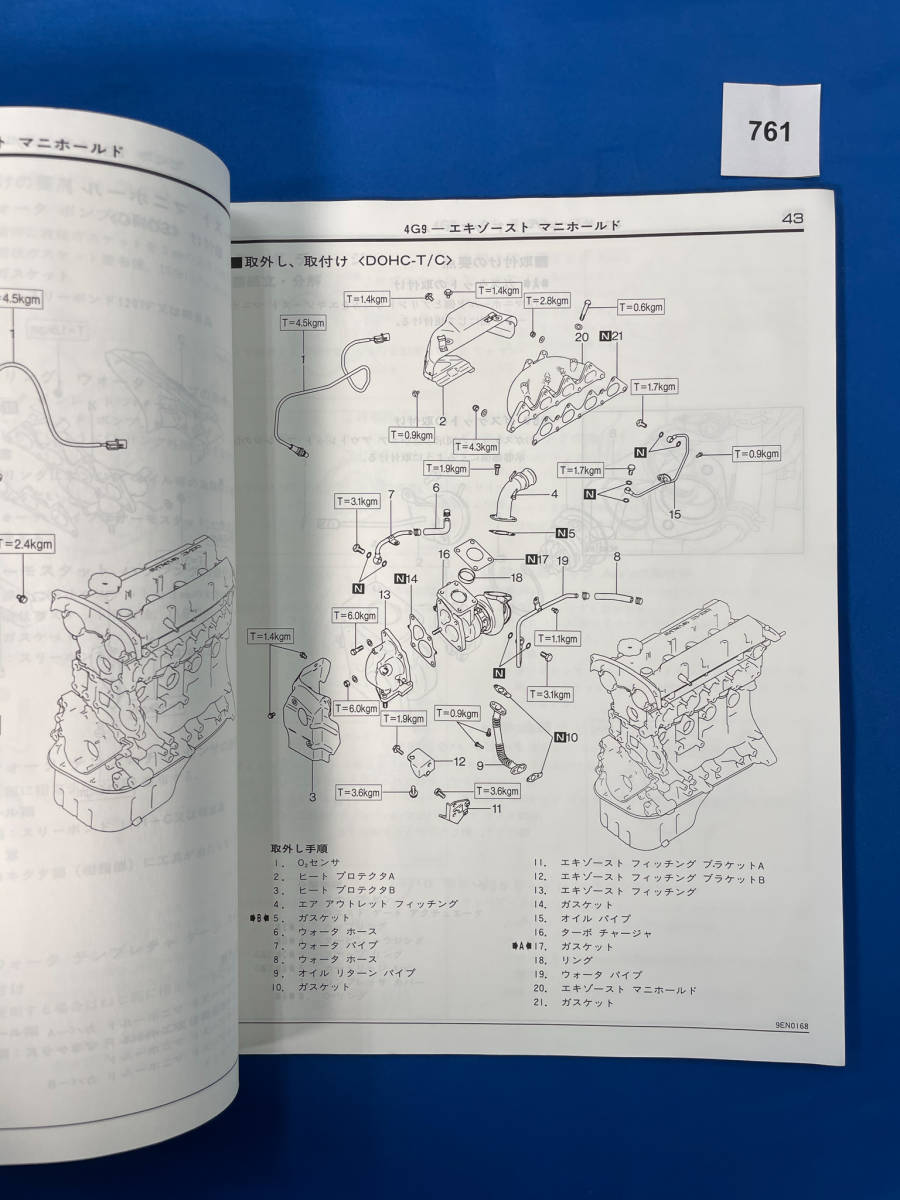 761
ト マニホールド
4.5kgm
1
T=2.4kgm
43
4G9 — エキゾースト マニホールド
■取外し、取付け 〈DOHC-T/C〉
T=1.4kgm
T=1.4kgm
T=2.8kgm
T=0.6kgm
T=4.5kgm
1
20
N21
T=1.7kgm
2
T=0.9kgm
T=4.3kgm
N
T=0.9kgm
T=1.9kgm
T=1.7kgm
N
4
15
T=3.1kgm
7
6
N5
16
N17
19
8
N
N14
18
13
T=6.0kgm
T=1.4kgm
T=1.1kgm
N
T=3.1kgm
T=6.0kgm
T=1.9kgm
T=0.9kgm
N10
12
9
3
T=3.6kgm
T=3.6kgm
11
取外し手順
1. O₂センサ
2. ヒート プロテクタA
3. ヒート プロテクタB
4. エア アウトレット フィッチング
➧B➧ 5. ガスケット
6. ウォータ ホース
7. ウォータ パイプ
8. ウォータ ホース
9. オイル リターン パイプ
10. ガスケット
11. エキゾースト フィッチング ブラケットA
12. エキゾースト フィッチング ブラケットB
13. エキゾースト フィッチング
14. ガスケット
15. オイル パイプ
16. ターボ チャージャ
➧A➧ 17. ガスケット
18. リング
19. ウォータ パイプ
20. エキゾースト マニホールド
21. ガスケット
9EN0168